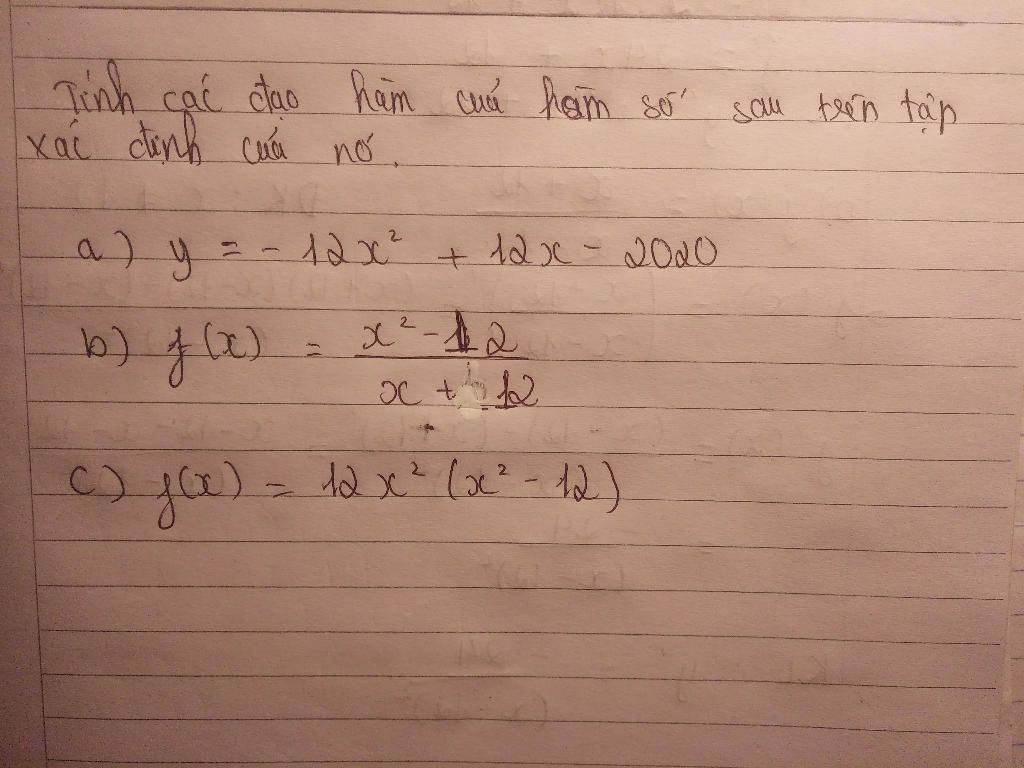 Tính các đạo hàm củả hàm số sau trên tập
xác định củả nó.
a) y = - 12x² + 12x - 2020
b) f(x) = \frac{x² - 12}{x + 12}
c) f(x) = 12x² (x² - 12)